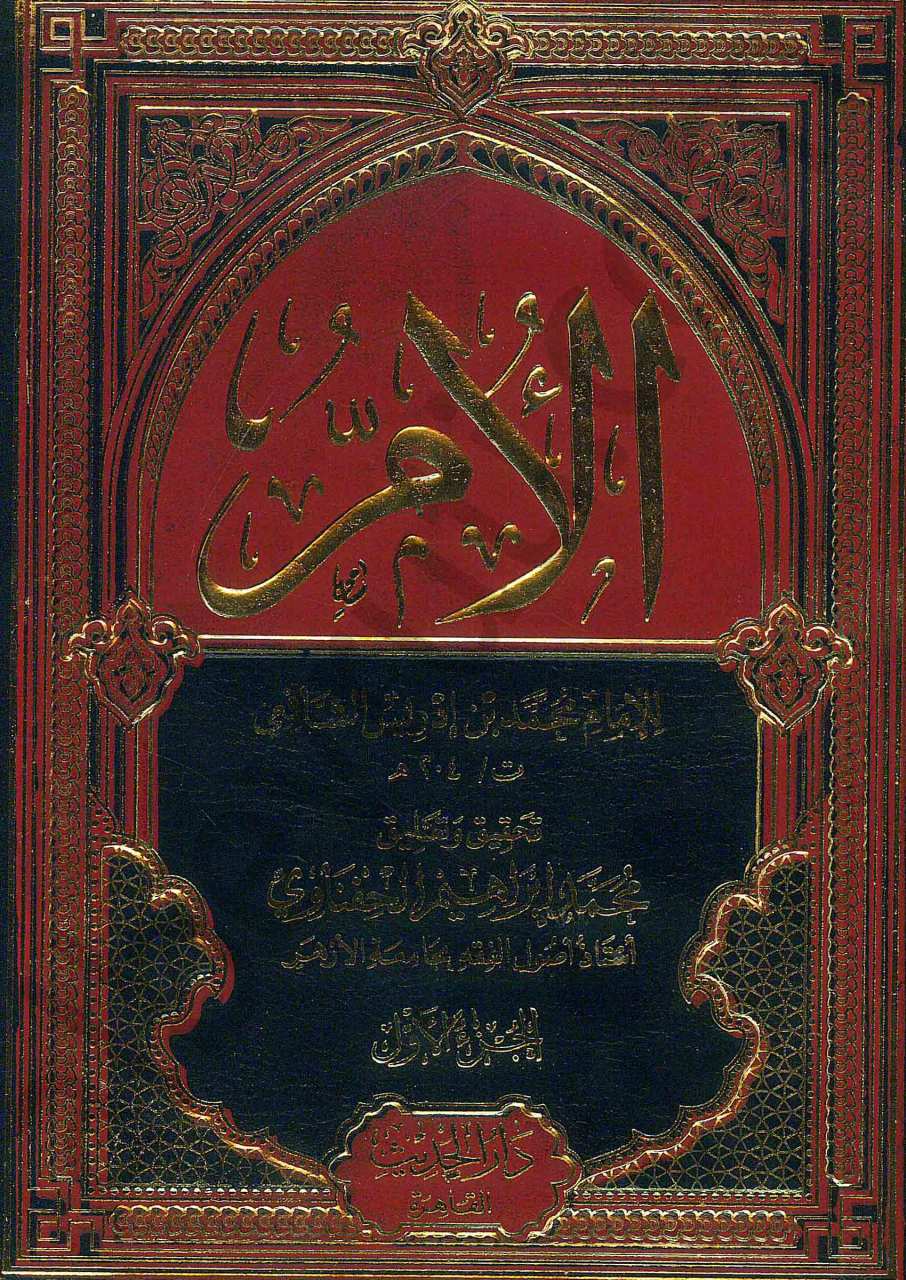 الأمّ
للإمام محمد بن إدريس الشافعي
ت/ ٢٠٤ هـ
تحقيق وتعليق
محمد إبراهيم الحفناوي
أستاذ أصول الفقه بجامعة الأزهر
الجزء الأول
دار الحديث
القاهرة